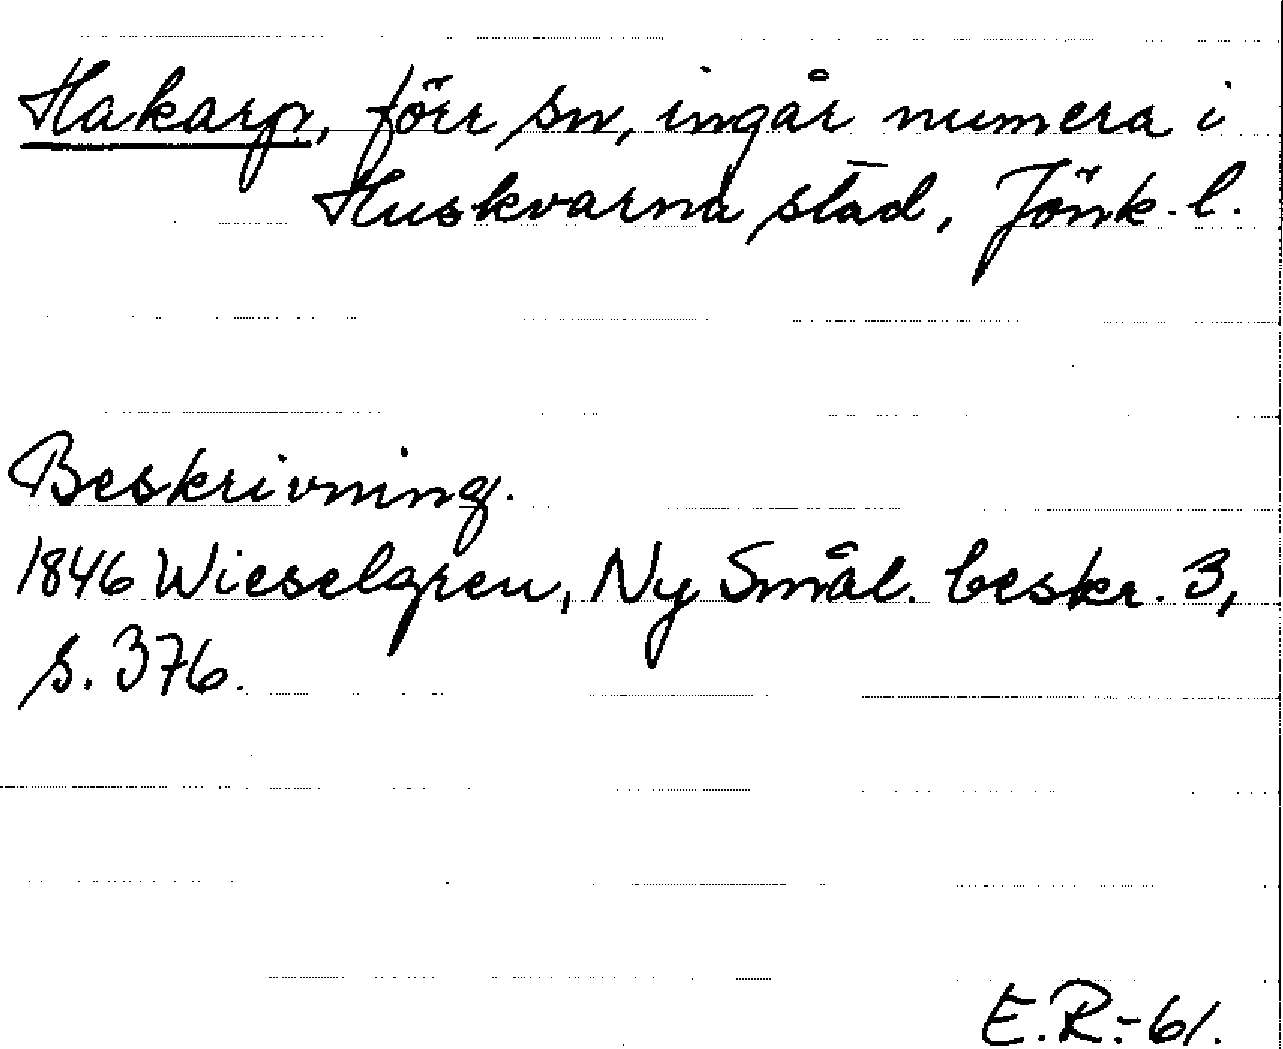 Hakarp, förr sn, ingår numera i
Huskvarna stad, Jönk. l.
Beskrivning.
1846 Wieselgren, Ny Smål. beskr. 3,
s. 376.
E.R.-61.